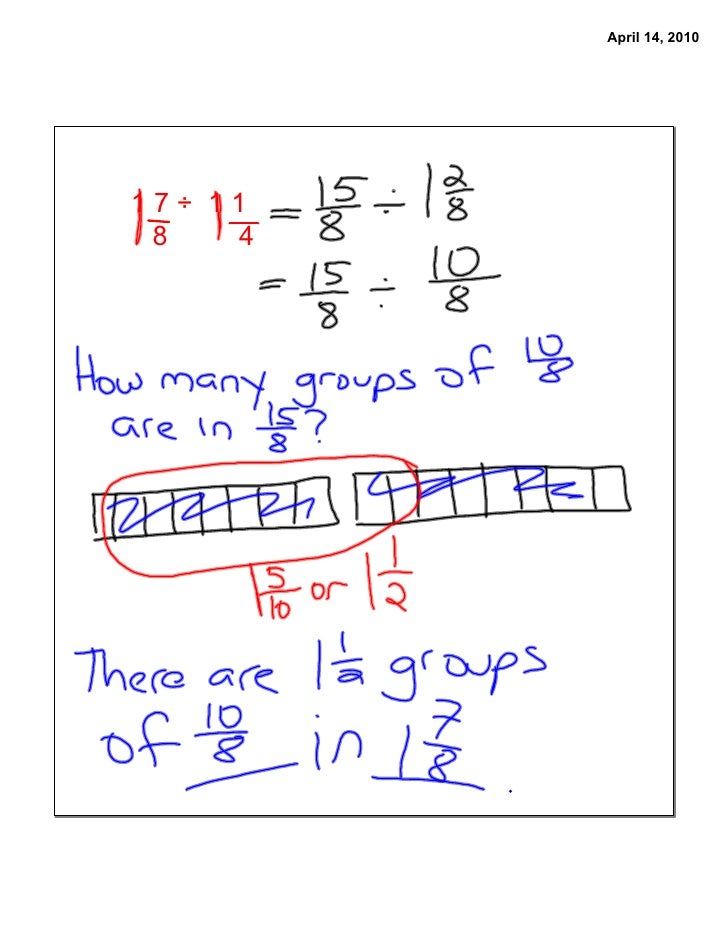 April 14, 2010
1 7/8 ÷ 1 1/4 = 15/8 ÷ 1 2/8
= 15/8 ÷ 10/8
How many groups of 10/8
are in 15/8?
1 5/10 or 1 1/2
There are 1 1/2 groups
of 10/8 in 1 7/8.